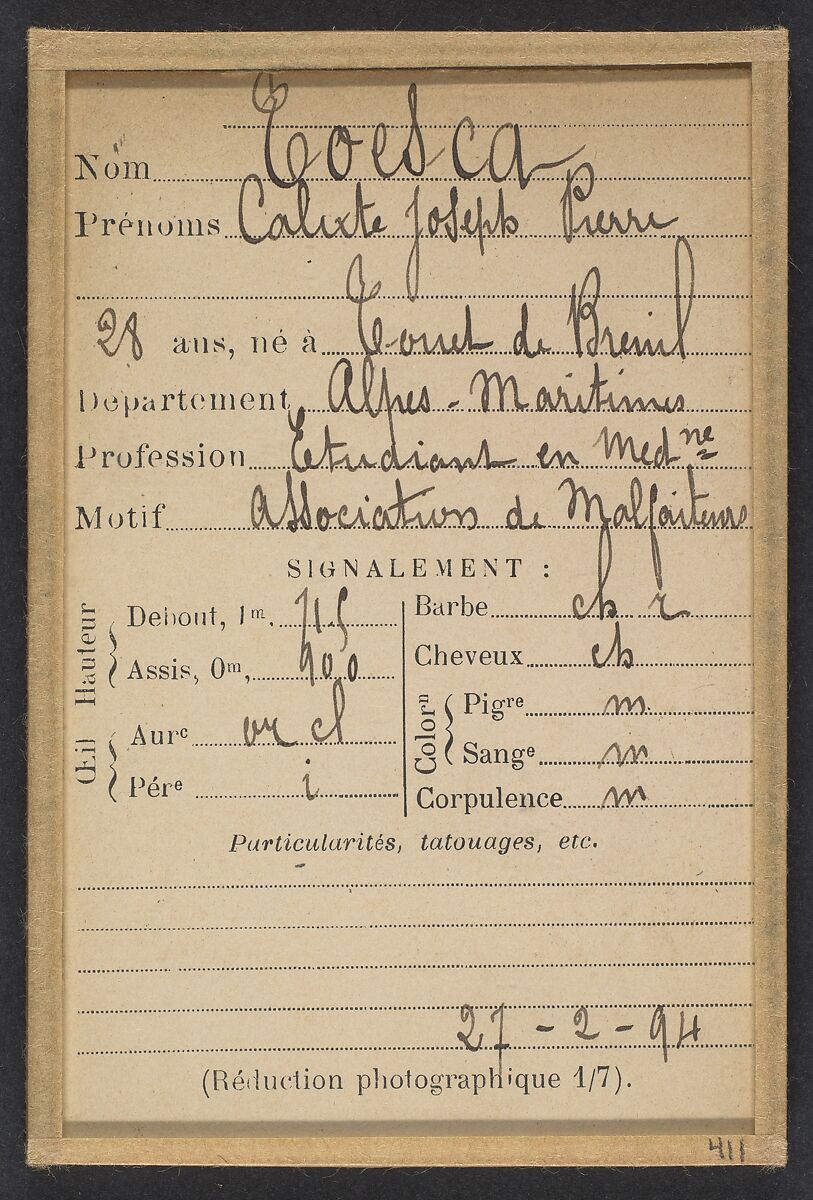 Nom Toesca
Prénoms Calixte Joseph Pierre
28 ans, né à Touet de Breuil
Département Alpes-Maritimes
Profession Etudiant en Medne
Motif Association de Malfaiteurs
SIGNALEMENT :
Hauteur
Debout, 1m. 71.5
Assis, 0m, 90.0
Œil
Aurc or cl
Pére i
Barbe ch r
Cheveux ch
Colorn
Pigre m
Sange m
Corpulence m
Particularités, tatouages, etc.
27-2-94
(Réduction photographique 1/7).
411